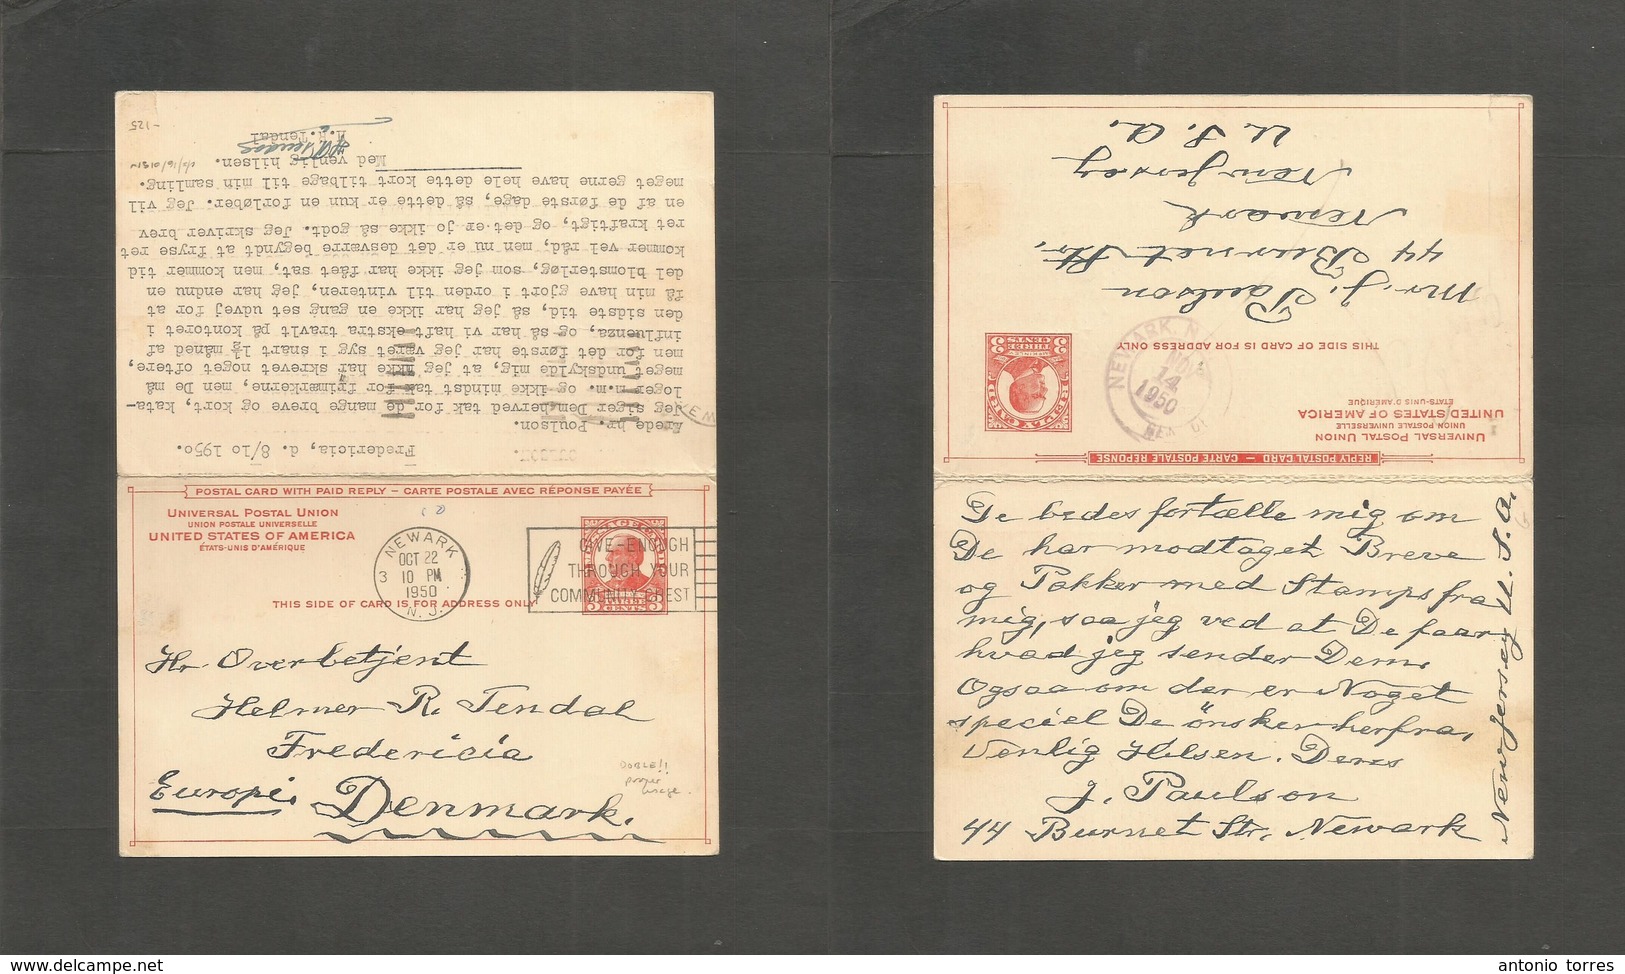 Fredericia, d. 8/10 1950.
Ærede hr. Poulson.
Jeg siger Dem herved tak for de mange breve og kort, kata-
loger m.m. og ikke mindst tak for frimærkerne, men De må
meget undskylde mig, at jeg ikke har skrevet noget oftere,
men for det første har jeg været syg i snart 1½ måned af
influenza, og så har vi haft ekstra travlt på kontoret i
den sidste tid, så jeg har ikke en gang set udvej for at
få min have gjort i orden til vinteren, jeg har endnu en
del blomsterløg, som jeg ikke har fået sat, men kommer tid
kommer vel råd, men nu er det desværre begyndt at fryse ret
ret kraftigt, og det er jo ikke så godt. Jeg skriver brev
en af de første dage, så dette er kun en forløber. Jeg vil
meget gerne have hele dette kort tilbage til min samling.
Med venlig hilsen.
H.R. Tendal
-125
POSTAL CARD WITH PAID REPLY – CARTE POSTALE AVEC RÉPONSE PAYÉE
UNIVERSAL POSTAL UNION
UNION POSTALE UNIVERSELLE
UNITED STATES OF AMERICA
ÉTATS-UNIS D'AMÉRIQUE
THIS SIDE OF CARD IS FOR ADDRESS ONLY
NEWARK 3
OCT 22
10 PM
1950
N.J.
GIVE-ENOUGH
THROUGH YOUR
COMMUNITY CHEST
3 CENTS 3
Hr. Overbetjent
Helmer R. Tendal
Fredericia
Europe. Denmark.
DOBLE!!
proper
usage.
REPLY POSTAL CARD – CARTE POSTALE RÉPONSE
UNIVERSAL POSTAL UNION
UNION POSTALE UNIVERSELLE
UNITED STATES OF AMERICA
ÉTATS-UNIS D'AMÉRIQUE
THIS SIDE OF CARD IS FOR ADDRESS ONLY
3 THREE CENTS 3
NEWARK, N.
NOV
14
1950
Mr. J. Paulson
44 Burnet Str.
Newark
New Jersey
U. S. A.
De bedes fortælle mig om
De har modtaget Breve
og Pakker med Stamps fra
mig, saa jeg ved at De faar
hvad jeg sender Dem.
Ogsaa om der er Noget
speciel De önsker herfra,
Venlig Hilsen. Deres
J. Paulson
44 Burnet Str. Newark
New Jersey U. S. A.
antonio torres
delcampe.net